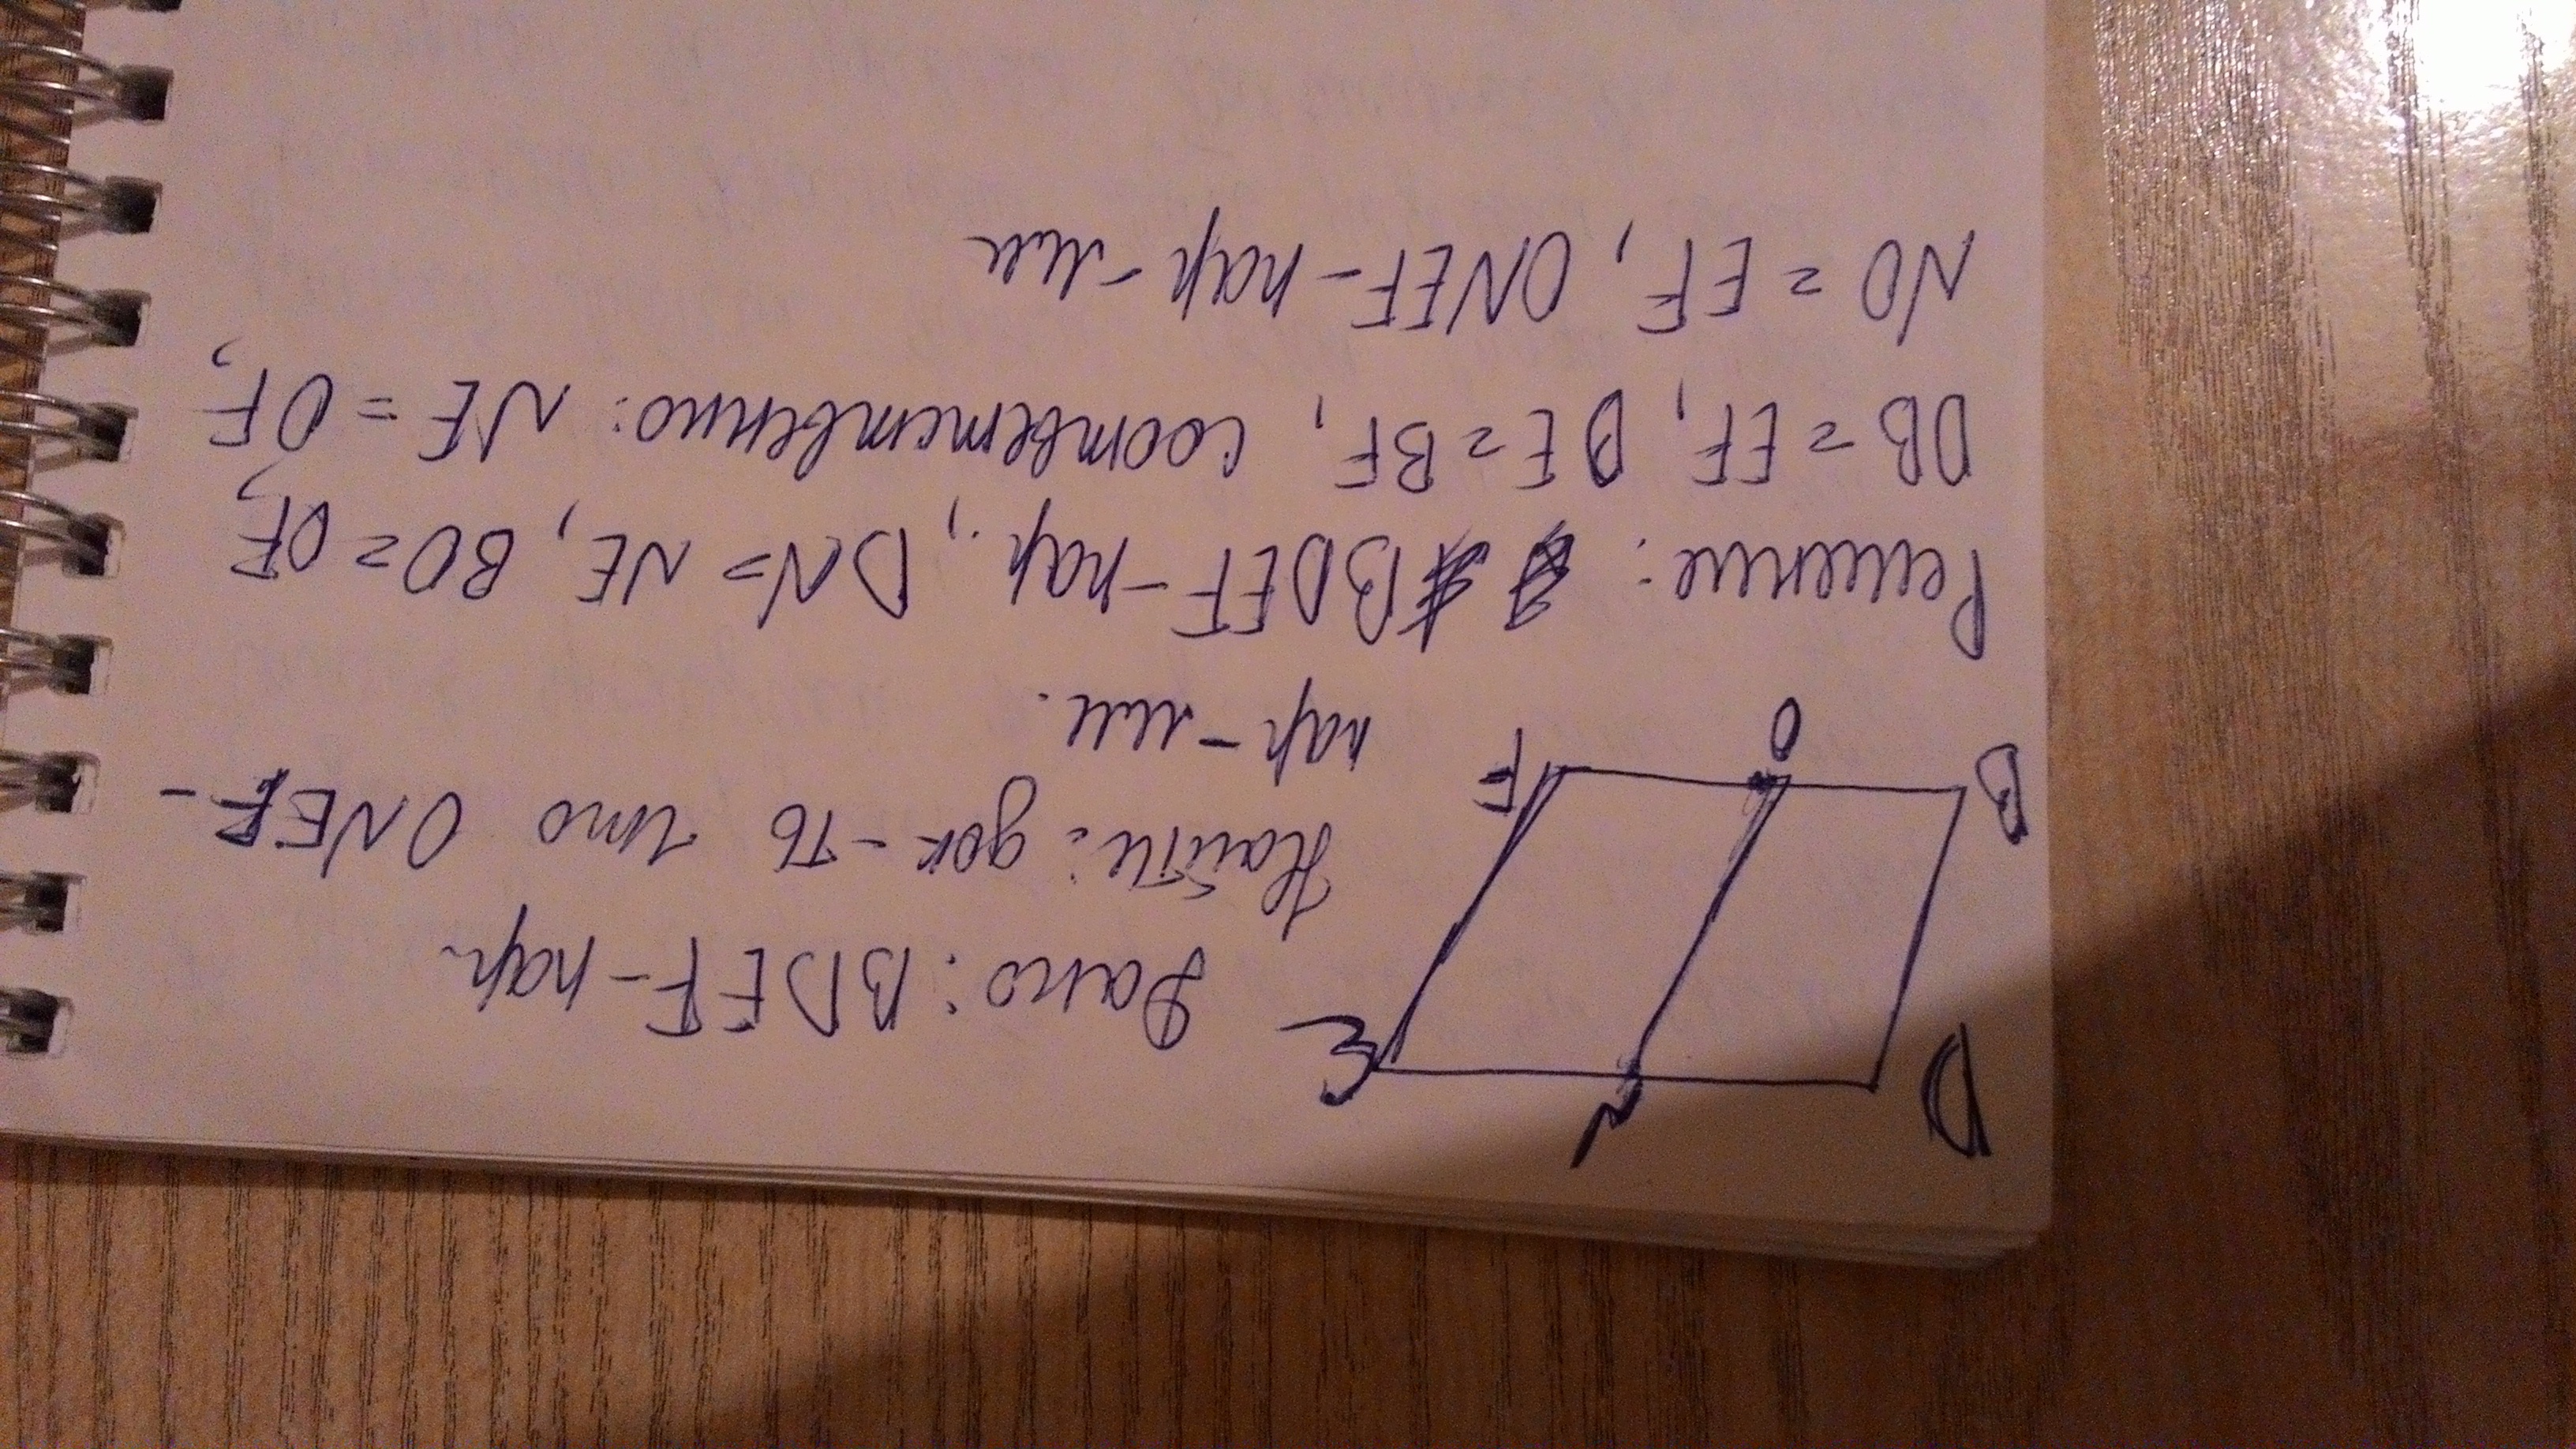 D
N
E
Дано: BDEF - пар
Найти: док-ть что ONEF -
пар-мм.
B
O
F
Решение: BDEF - пар., DN = NE, BO = OF,
DB = EF, DE = BF, соответственно: NE = OF,
NO = EF, ONEF - пар-мм